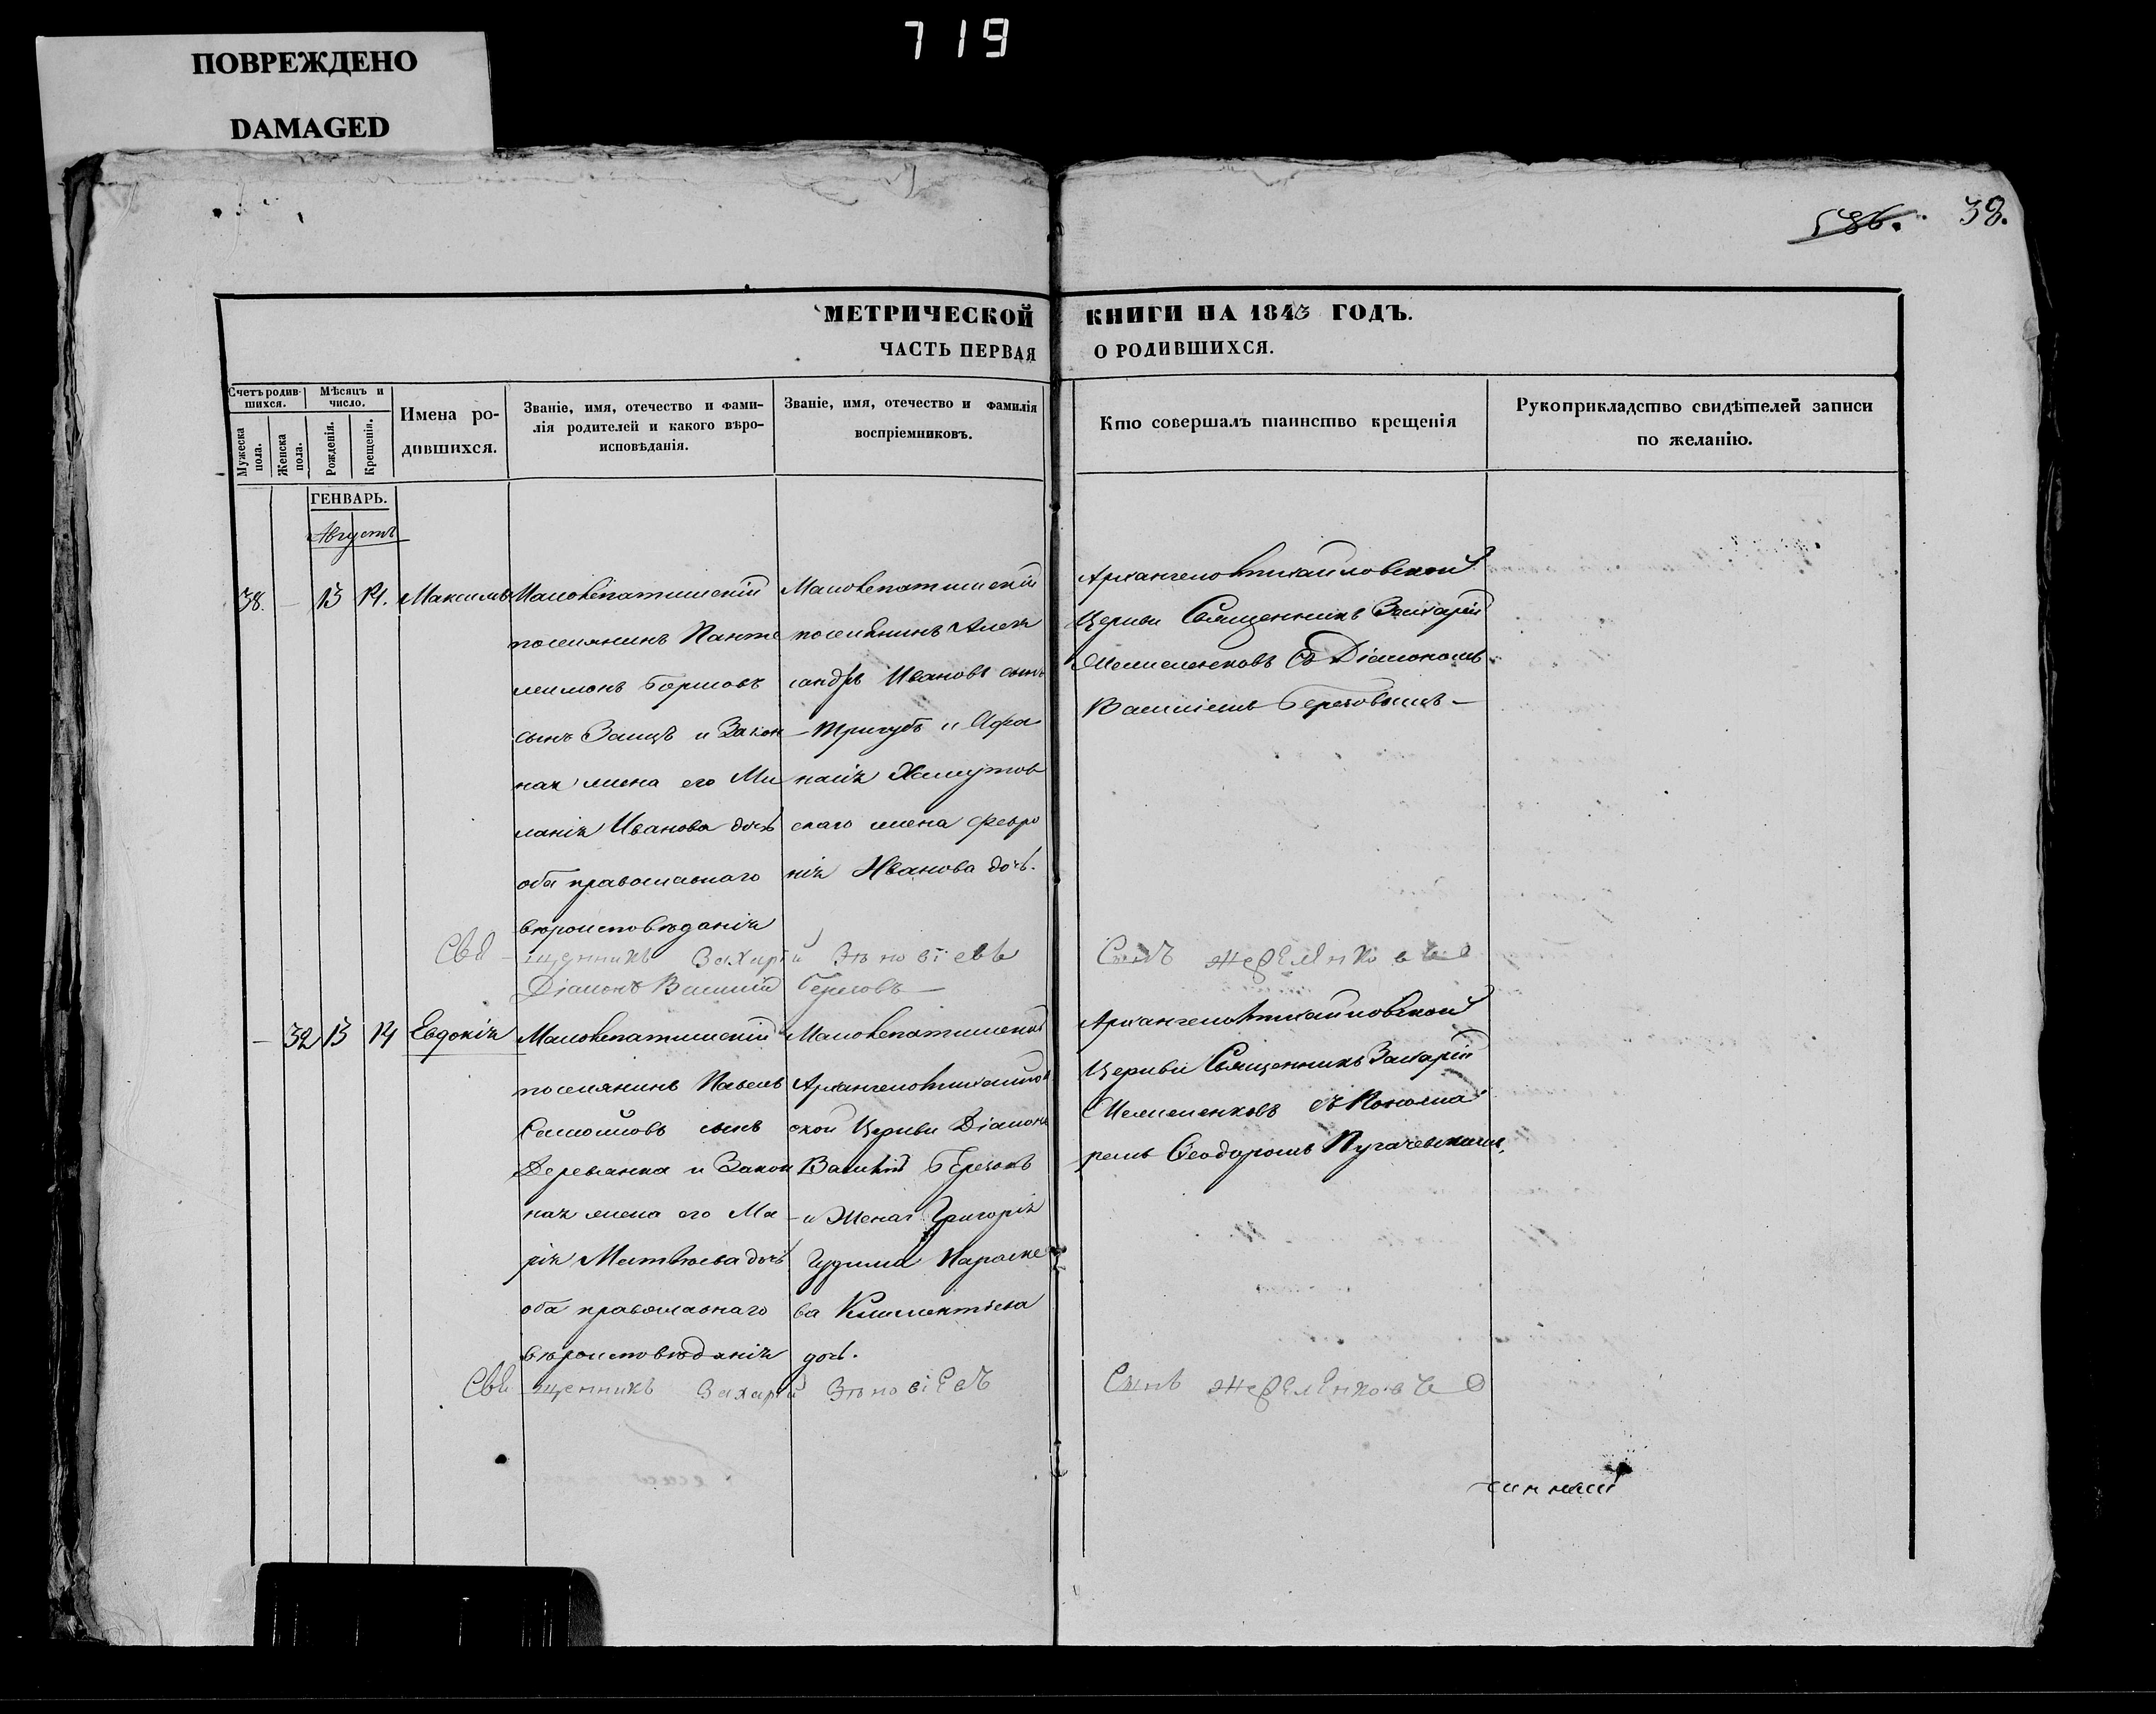 719
ПОВРЕЖДЕНО
DAMAGED
586. 38.
МЕТРИЧЕСКОЙ КНИГИ НА 1843 ГОДЪ.
ЧАСТЬ ПЕРВАЯ О РОДИВШИХСЯ.
Счетъ родив-
шихся.
Мужеска
пола.
Женска
пола.
Мѣсяцъ и
число.
Рожденія.
Крещенія.
Имена ро-
дившихся.
Званіе, имя, отечество и фами-
лія родителей и какого вѣро-
исповѣданія.
Званіе, имя, отечество и фамилія
воспріемниковъ.
Кто совершалъ таинство крещенія
Рукоприкладство свидѣтелей записи
по желанію.
ГЕНВАРЬ.
Августъ
38. - 13 14. Максимъ
поселянинъ Панте
леимонъ
сынъ Заецъ и Закон
ная жена его Ме
ланія Иванова дочь
оба православнаго
вѣроисповѣданія
поселянинъ Алек
сандръ Ивановъ сынъ
Тригубъ и Афа
насія
скаго жена Февро
нія Иванова дочь.
Архангеломихайловской
Церкви Священникъ Захарій
съ Діакономъ
Василіемъ Береговымъ
Священникъ Захарій Зѣновіевъ Сынъ
Діаконъ Василій Береговъ
- 32 13 14 Евдокія
поселянинъ Павелъ
сынъ
Деревянка и Закон
ная жена его Ма
рія Матвѣева дочь
оба православнаго
вѣроисповѣданія
Архангеломихайлов
ской Церкви Діаконъ
Василій Береговъ
и Жена Григорія
Чудима Параске
ва Климентіева
дочь.
Архангеломихайловской
Церкви Священникъ Захарій
съ Понома
ремъ Феодоромъ Пугачевскимъ.
Священникъ Захарій Зѣновіевъ Сынъ